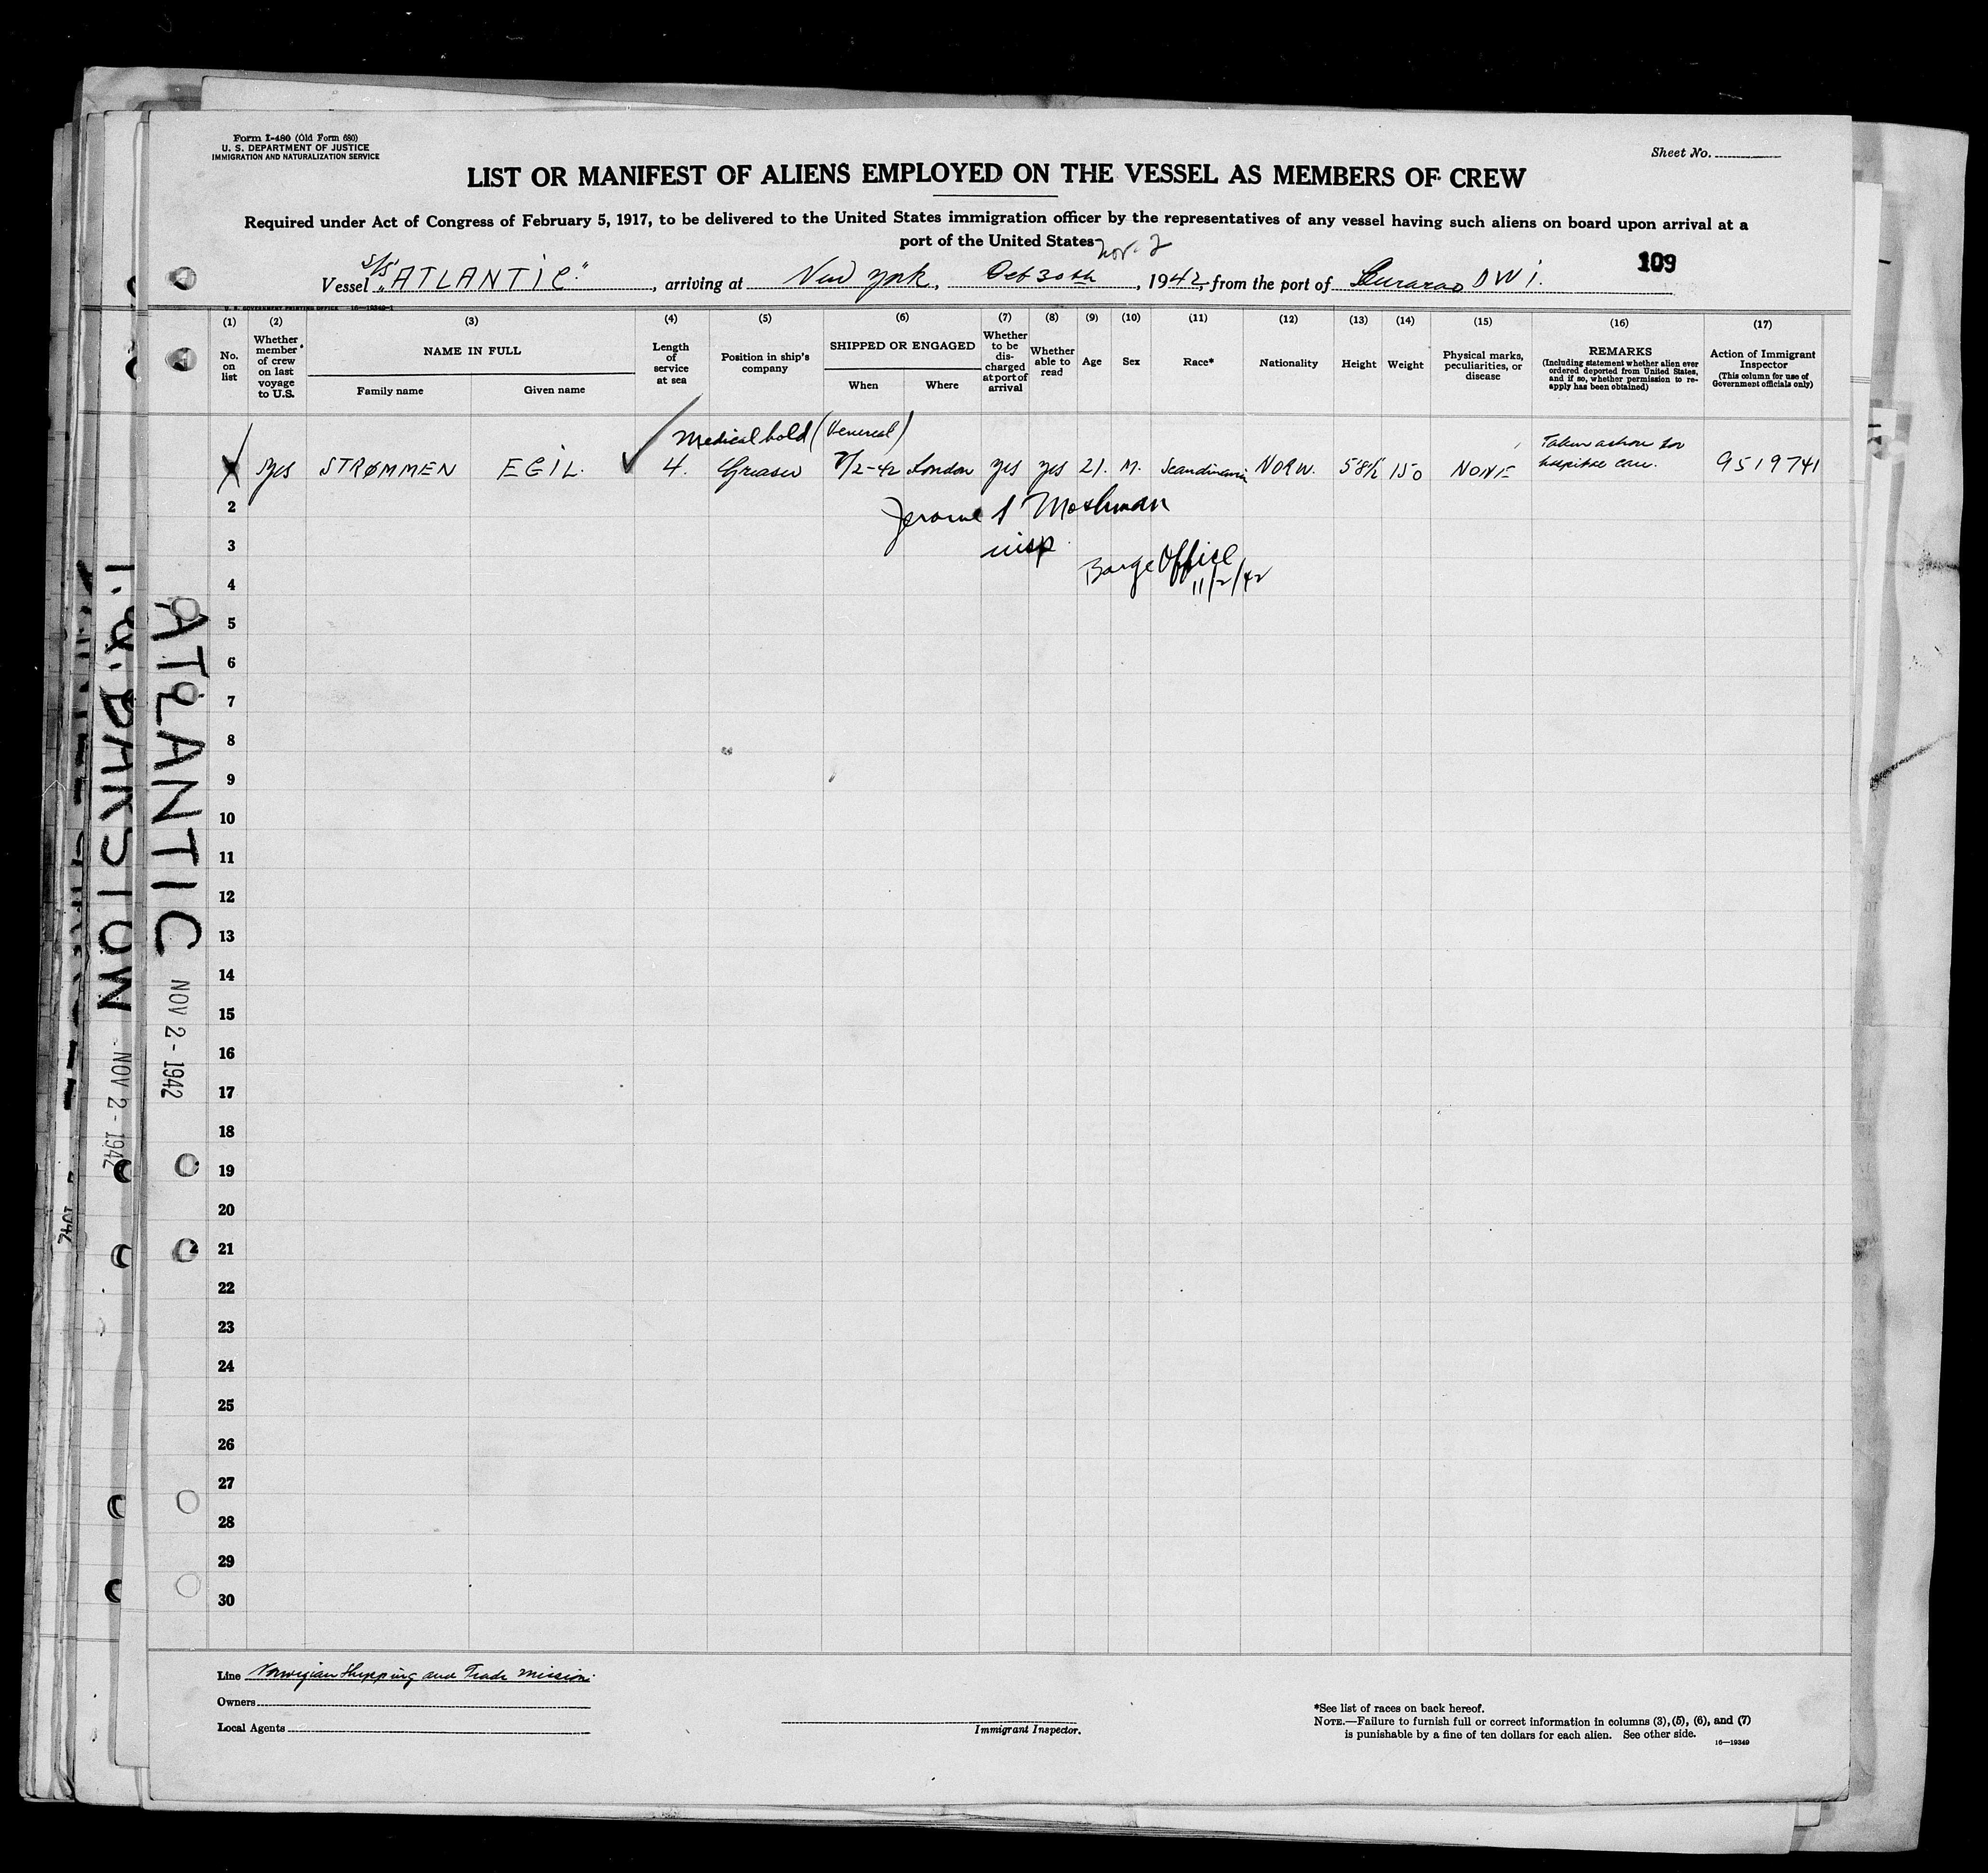 Form I-480 (Old Form 680)
U. S. DEPARTMENT OF JUSTICE
IMMIGRATION AND NATURALIZATION SERVICE
Sheet No.
LIST OR MANIFEST OF ALIENS EMPLOYED ON THE VESSEL AS MEMBERS OF CREW
Required under Act of Congress of February 5, 1917, to be delivered to the United States immigration officer by the representatives of any vessel having such aliens on board upon arrival at a
port of the United States
Nov. 2
109
Vessel S/S "ATLANTIC", arriving at New York, Oct 30th, 1942, from the port of Curacao D W I.
U. S. GOVERNMENT PRINTING OFFICE 16—19349-1
(1) (2) (3) (4) (5) (6) (7) (8) (9) (10) (11) (12) (13) (14) (15) (16) (17)
No. on list
Whether member of crew on last voyage to U.S.
NAME IN FULL
Family name
Given name
Length of service at sea
Position in ship's company
SHIPPED OR ENGAGED
When
Where
Whether to be discharged at port of arrival
Whether able to read
Age
Sex
Race*
Nationality
Height
Weight
Physical marks, peculiarities, or disease
REMARKS
(Including statement whether alien ever ordered deported from United States, and if so, whether permission to re-apply has been obtained)
Action of Immigrant Inspector
(This column for use of Government officials only)
Medical hold (Venereal)
yes STRØMMEN EGIL. 4. Greaser 7/2-42 London yes yes 21. M. Scandinavia NORW. 5'8½ 150 NONE Taken ashore for hospital care. 9519741
2
Jerome S Moshman
3
insp
Barge Office
4
11/2/42
5
6
7
8
9
10
11
12
13
14
15
16
17
18
19
20
21
22
23
24
25
26
27
28
29
30
ATLANTIC NOV 2 - 1942
NOV 2 - 1942
Line Norwegian Shipping and Trade Mission.
Owners
Local Agents
Immigrant Inspector.
*See list of races on back hereof.
NOTE.—Failure to furnish full or correct information in columns (3), (5), (6), and (7)
is punishable by a fine of ten dollars for each alien. See other side.
16—19349